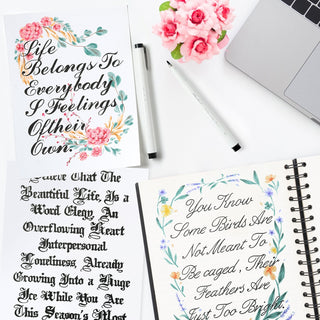 Life
Belongs To
Everybody
S Feelings
Of their
Own.
Believe That The
Beautiful Life, Is a
Word Elegy, An
Overflowing Heart
Interpersonal
Loneliness, Already
Growing Into a Huge
Ice While You Are
This Season's Most
You Know
Some Birds Are
Not Meant To
Be caged, Their
Feathers Are
Just Too Bright.